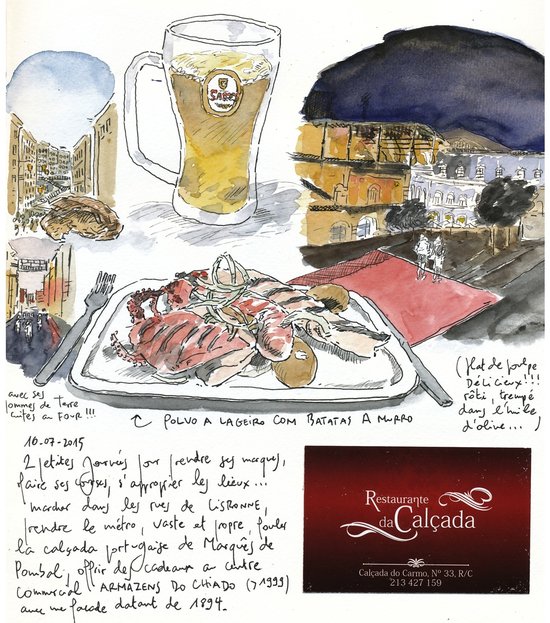 SAGRES
avec ses
pommes de terre
cuites au FOUR !!!
POLVO A LAGEIRO COM BATATAS A MURRO
(plat de poulpe
DÉLICIEUX !!!
rôti, trempé
dans l'huile
d'olive... )
10.07.2015
2 petites journées pour prendre ses marques,
faire ses courses, s'approprier les lieux...
marcher dans les rues de LISBONNE,
prendre le métro, vaste et propre, fouler
la calçada portugaise de Marquês de
Pombal, offrir des cadeaux au centre
commercial "ARMAZENS DO CHIADO (→1999)
avec une façade datant de 1894.
Restaurante
da Calçada
Calçada do Carmo, Nº 33, R/C
213 427 159